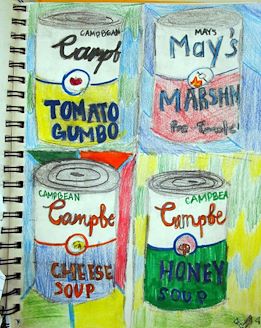 CAMPBGEAN
Campf
TOMATO
GUMBO
MAYS
May's
MARSHM
CAMPGEAN
Campbe
CHEESE
SOUP
CAMPBEA
Campbe
HONEY
SOUP